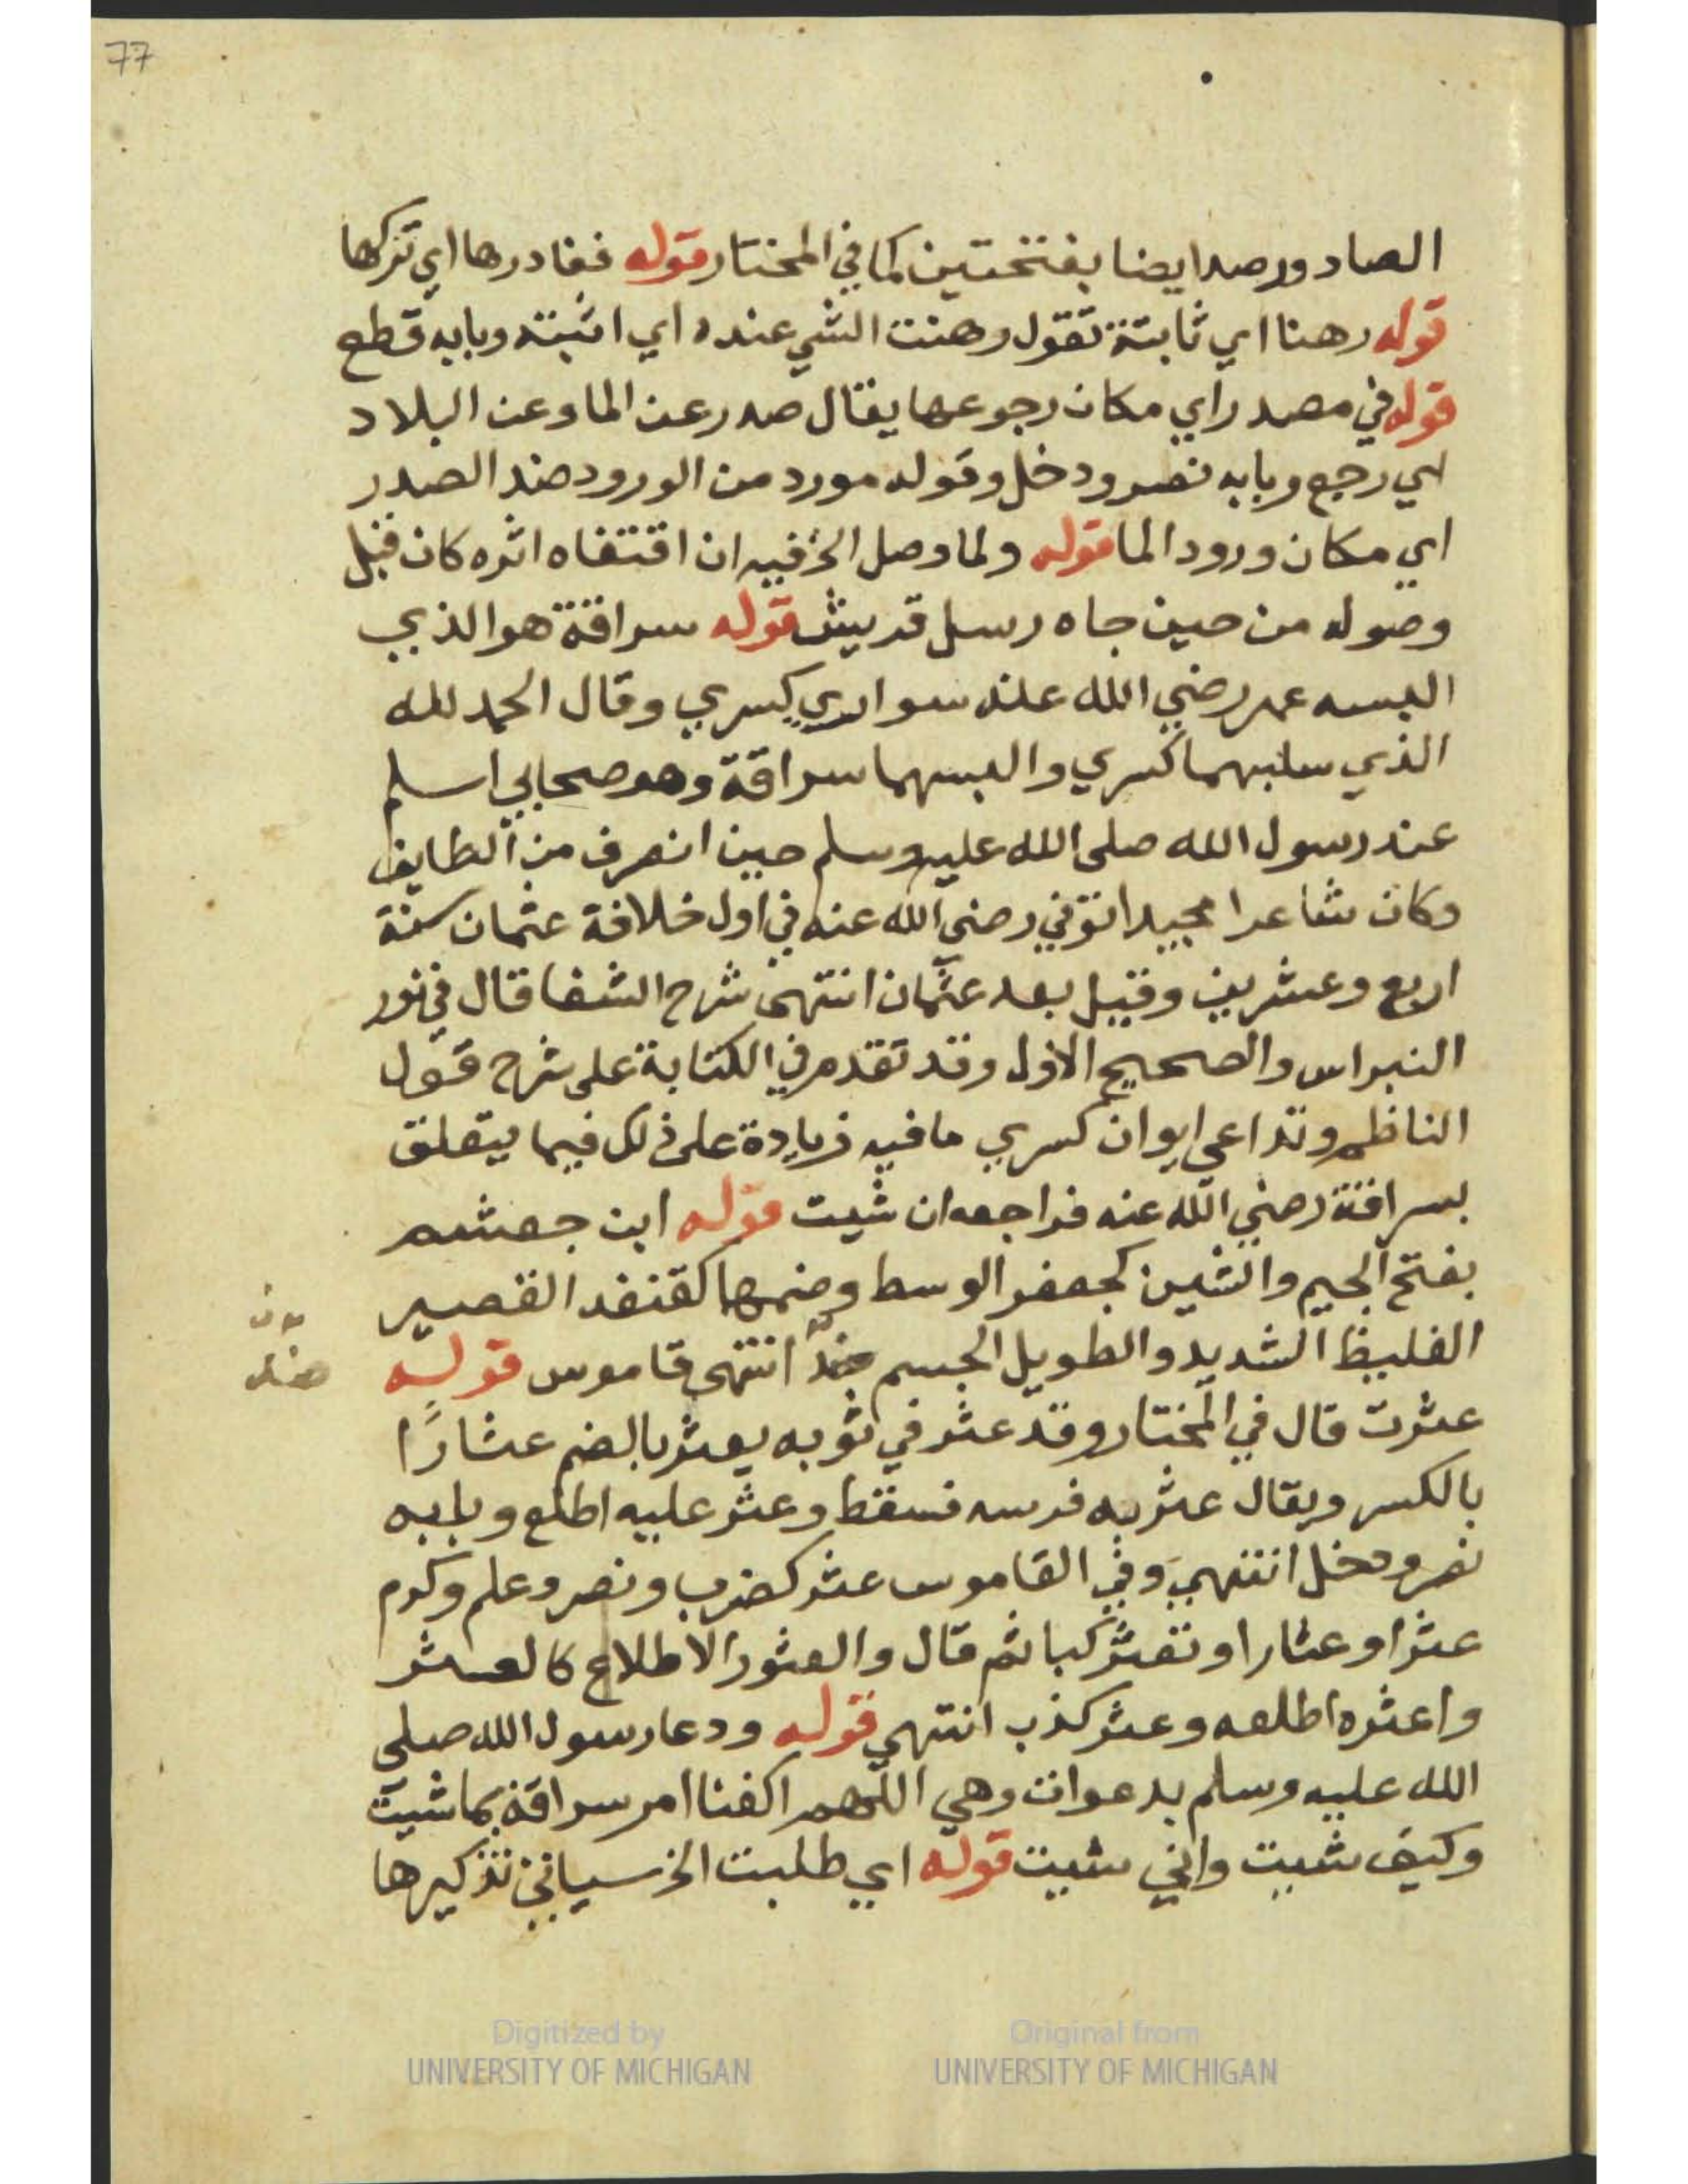 77
الصاد ورصدا يضا بفتحتين كما في المختار قوله فغادرها اي تركها
قوله رهنا اي ثابتة تقول رهنت الشي عنده اي اثبته وبابه قطع
قوله في مصدر اي مكان رجوعها يقال صدر عن الما وعن البلاد
اي رجع وبابه نصر ودخل وقوله مورد من الورود ضد الصدر
اي مكان ورود الما قوله ولما وصل الخ فيه ان اقتفاه اثره كان قبل
وصوله من حين جاه رسل قريش قوله سراقة هو الذي
البسه عمر رضي الله عنه سواري كسري وقال الحمد لله
الذي سلبهما كسري والبسهما سراقة وهو صحابي اسلم
عند رسول الله صلى الله عليه وسلم حين انصرف من الطايف
وكان شاعرا مجيدا توفي رضي الله عنه في اول خلافة عثمان سنة
اربع وعشرين وقيل بعد عثمان انتهى شرح الشفا قال في نور
النبراس والصحيح الاول وقد تقدم في الكتابة على شرح قول
الناظم وتداعي ايوان كسري ما فيه زيادة على ذلك فيما يتعلق
بسراقة رضي الله عنه فراجعه ان شيت قوله ابن جعشم
بفتح الجيم والشين كجعفر الوسط وضمها كقنفد القصير
الغليظ الشديد والطويل الجسم ضد انتهى قاموس قوله
ضد
عثرت قال في المختار وقد عثر في ثوبه يعثر بالضم عثارًا
بالكسر ويقال عثر به فرسه فسقط وعثر عليه اطلع وبابه
نصر ودخل انتهي وفي القاموس عثر كضرب ونصر وعلم وكرم
عثرا وعثارا وتعثر كبا ثم قال والعثور الاطلاع كالعثر
واعثره اطلعه وعثر كذب انتهي قوله ودعا رسول الله صلى
الله عليه وسلم بدعوات وهي اللهم اكفنا امر سراقة بما شيت
وكيف شيت واني شيت قوله اي طلبت الخ سياتي تذكيرها
Digitized by
UNIVERSITY OF MICHIGAN
Original from
UNIVERSITY OF MICHIGAN